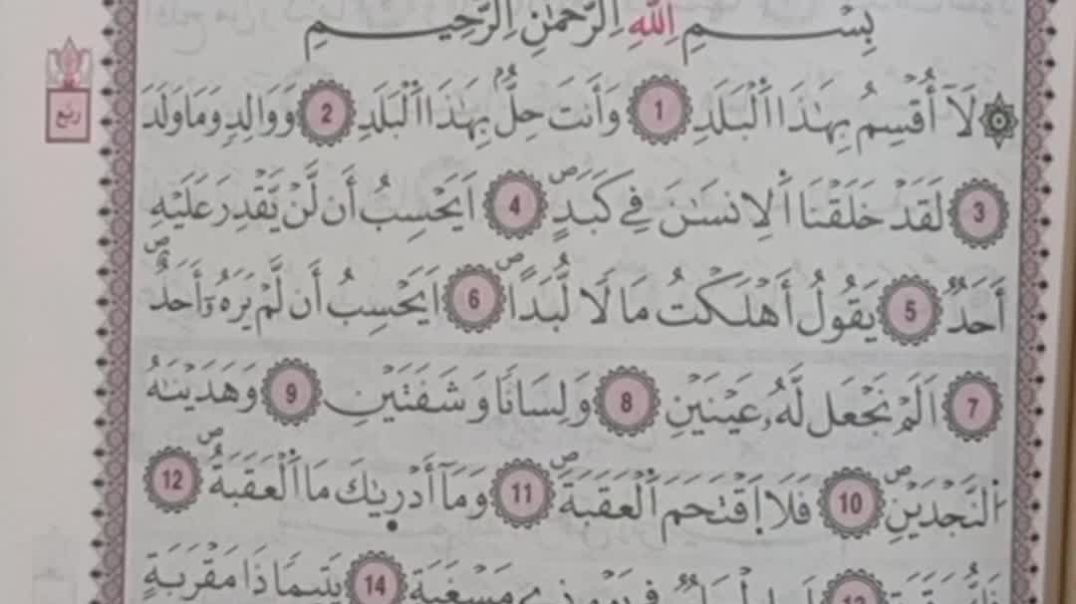 بِسْمِ اِللَّهِ اِلرَّحْمَٰنِ اِلرَّحِيمِ
لَآ أُقْسِمُ بِهَٰذَا اَلْبَلَدِ 1 وَأَنتَ حِلُّۢ بِهَٰذَا اَلْبَلَدِ 2 وَوَالِدٖ وَمَا وَلَدَ
ربع
3 لَقَدْ خَلَقْنَا اَلِانسَٰنَ فِے كَبَدٍ 4 اَيَحْسِبُ أَن لَّنْ يَّقْدِرَ عَلَيْهِ
أَحَدٌ 5 يَقُولُ أَهْلَكْتُ مَالَا لُّبَدًا 6 اَيَحْسِبُ أَن لَّمْ يَرَهُۥٓ أَحَدٌ
7 اَلَمْ نَجْعَل لَّهُۥ عَيْنَيْنِ 8 وَلِسَانًا وَشَفَتَيْنِ 9 وَهَدَيْنَٰهُ
اُ۬لنَّجْدَيْنِ 10 فَلَا اَ۪قْتَحَمَ اَ۬لْعَقَبَةَ 11 وَمَآ أَدْر۪يٰكَ مَا اَ۬لْعَقَبَةُ 12
14 يَتِيمٗا ذَا مَقْرَبَةٍ